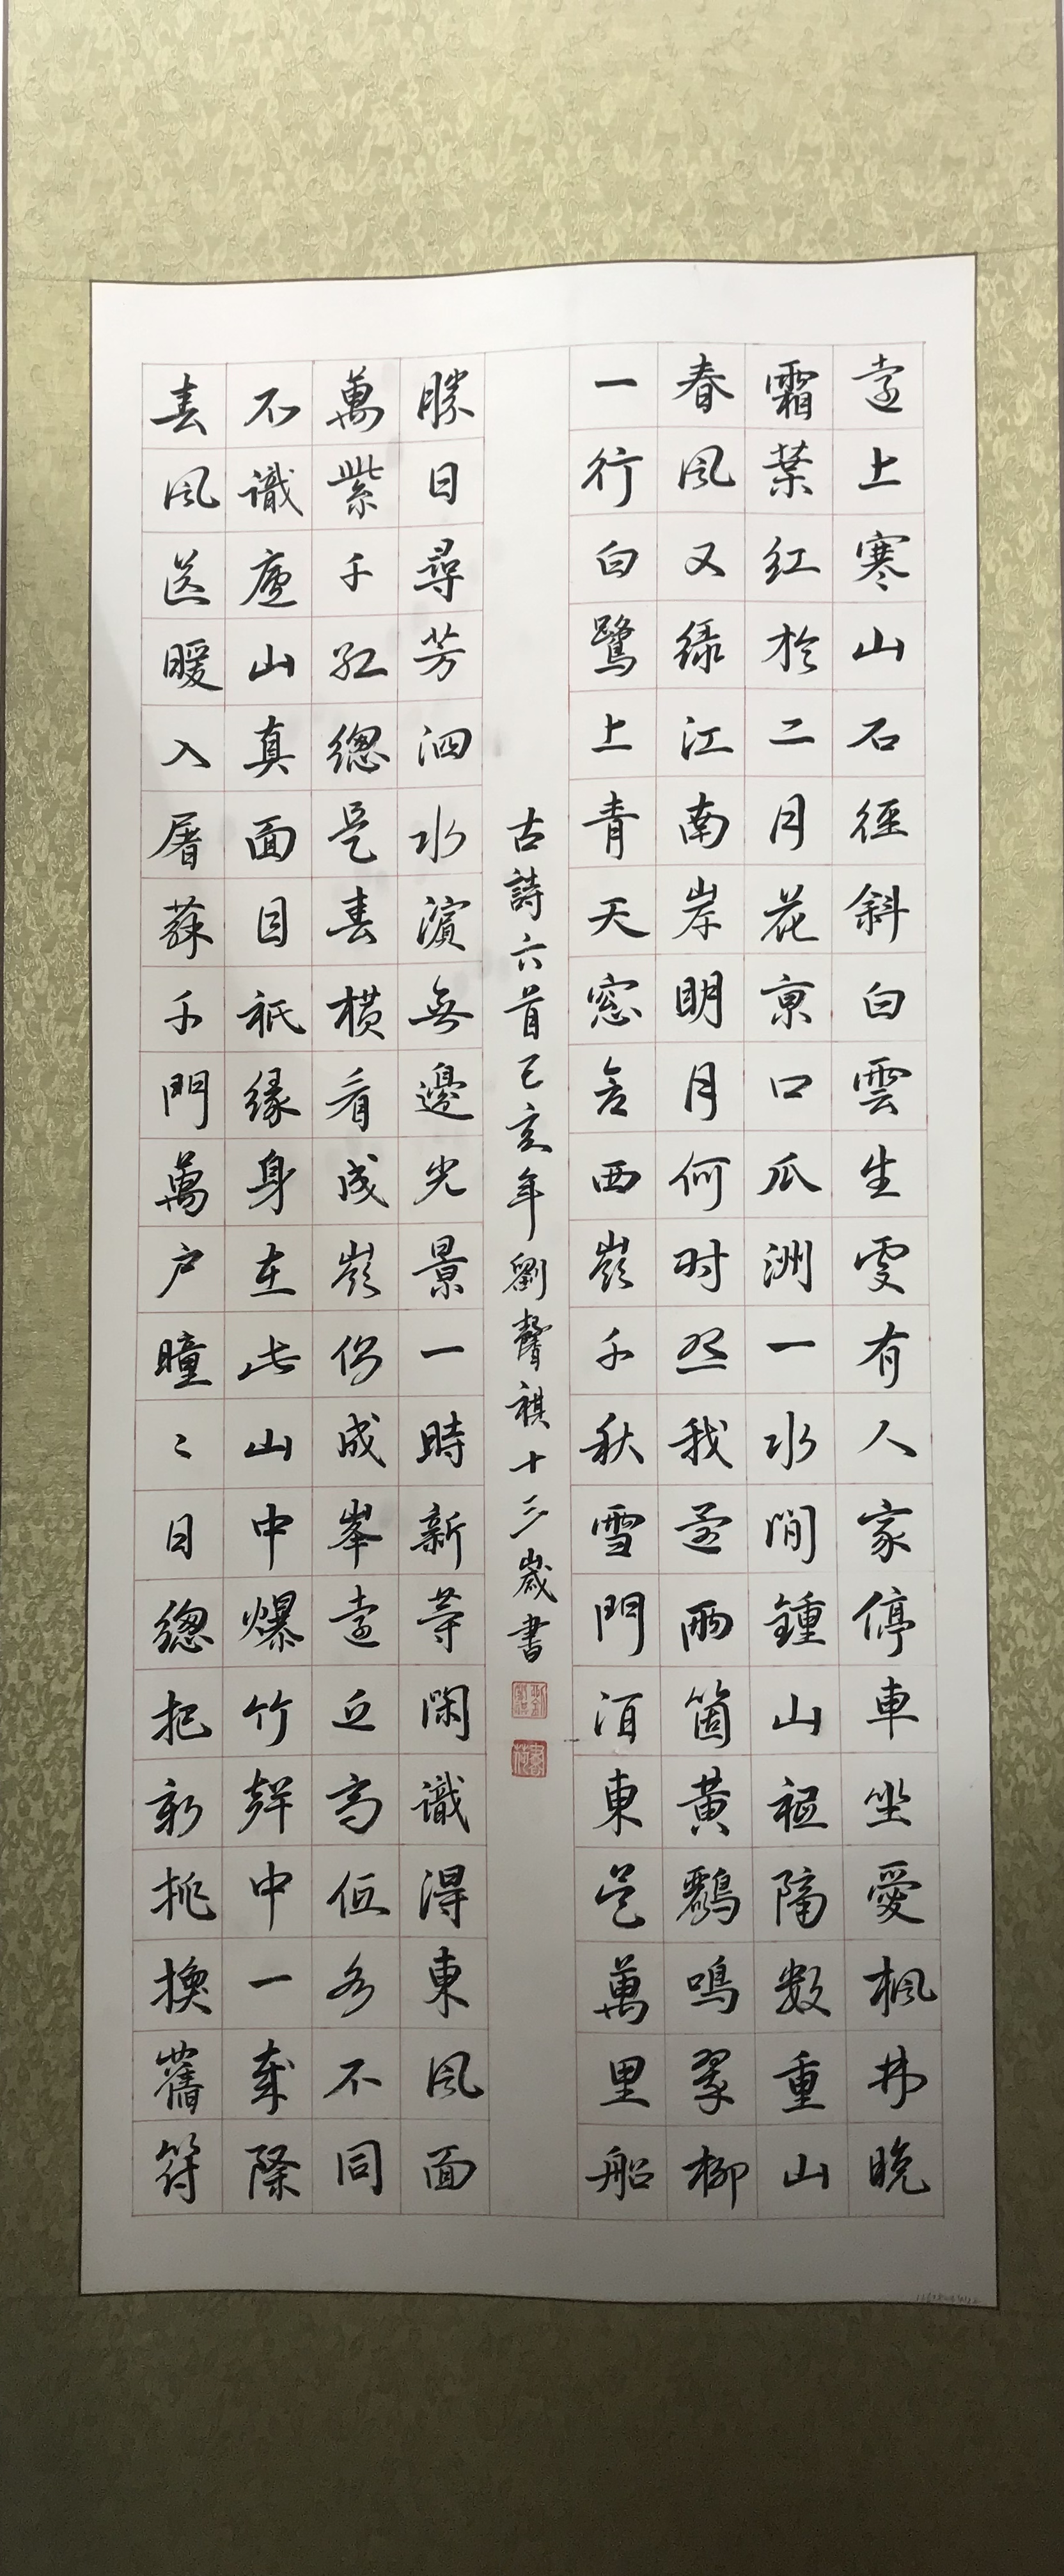 遠上寒山石徑斜白雲生處有人家停車坐愛楓林晚
霜葉紅於二月花京口瓜洲一水間鍾山祗隔數重山
春風又綠江南岸明月何时照我還兩箇黃鸝鳴翠柳
一行白鷺上青天窓含西嶺千秋雪門泊東吳萬里船
古詩六首己亥年劉馨祺十三歲書
勝日尋芳泗水濱無邊光景一時新等閑識得東風面
萬紫千紅總是春橫看成嶺側成峯遠近高低各不同
不識廬山真面目祇緣身在此山中爆竹聲中一歲除
春風送暖入屠蘇千門萬戶曈〻日總把新桃換舊符